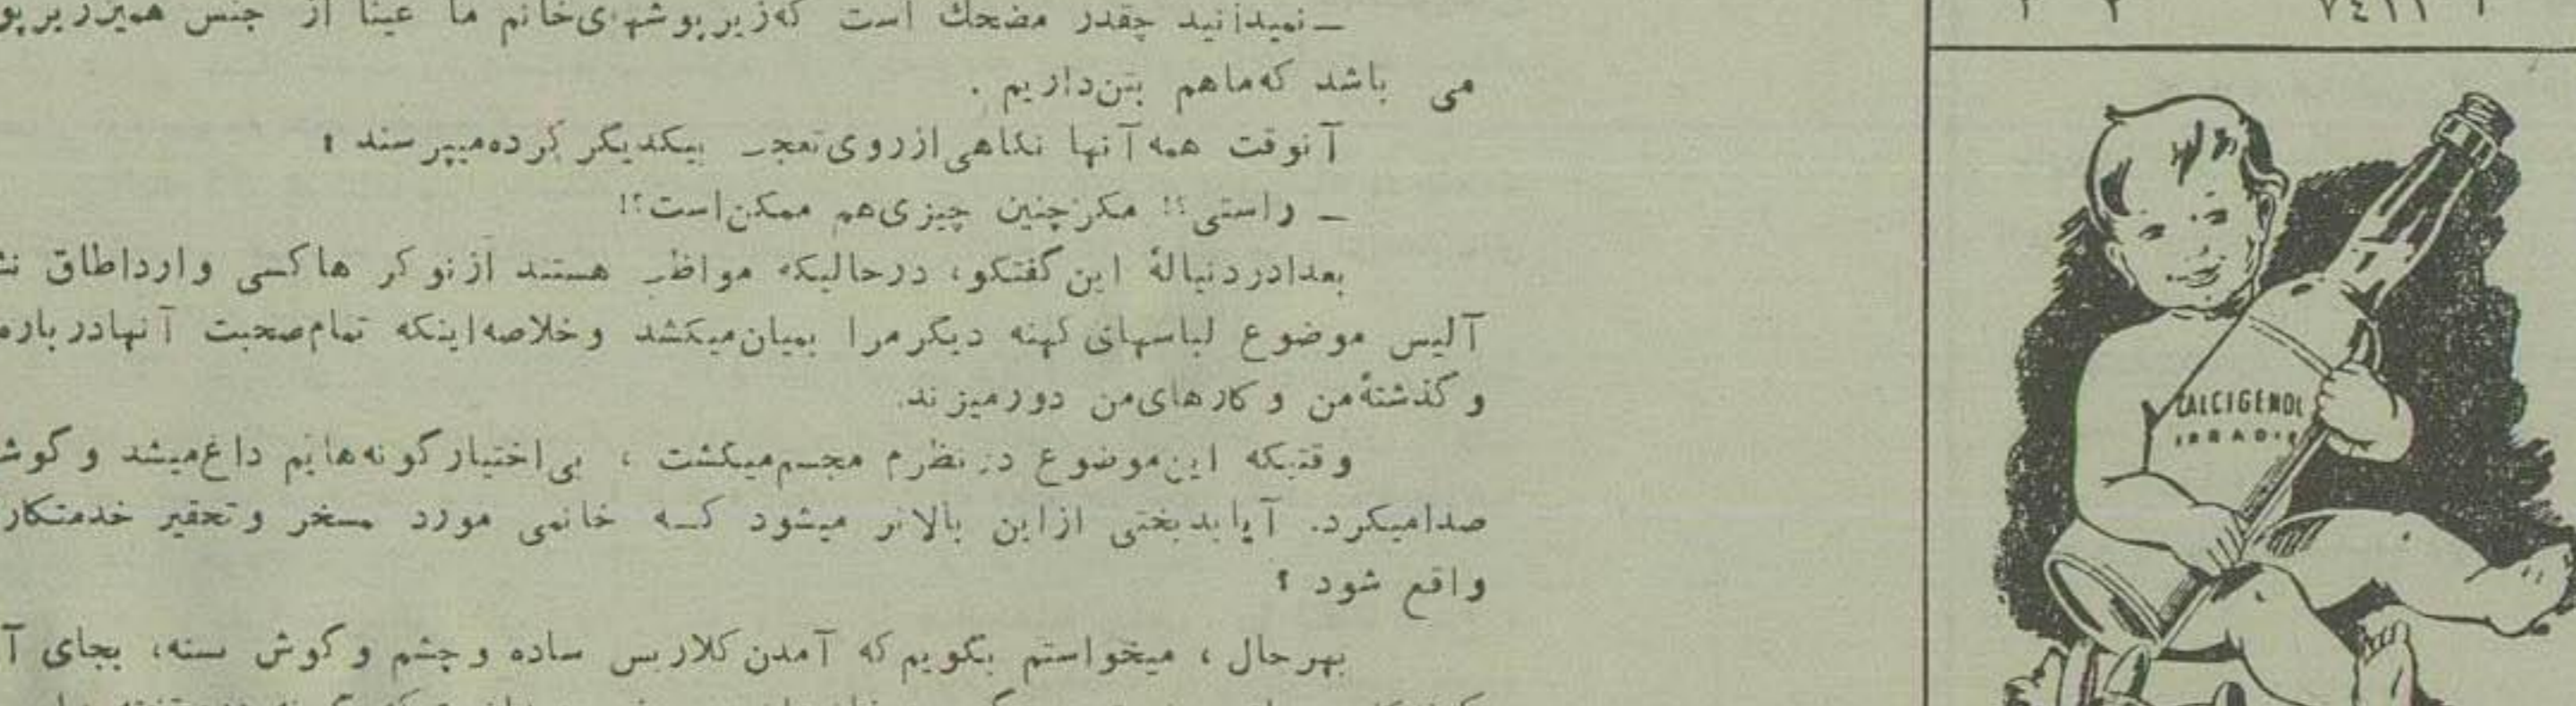 ـ نمیدانید چقدر مضحك است که زیرپوشهای خانم ما عیناً از جنس همین زیرپو
می باشد که ما هم بتن داریم .
آنوقت همه آنها نگاهی از روی تعجب بیکدیگر کرده میپرسند :
ـ راستی؟! مگر چنین چیزی هم ممکن است؟!
بعداً در دنبالهٔ این گفتگو، در حالیکه مواظب هستند از نوکر ها کسی وارد اطاق نش
آلیس موضوع لباسهای کهنه دیگر مرا بمیان میکشد و خلاصه اینکه تمام صحبت آنها در باره
و گذشتهٔ من و کارهای من دور میزند.
وقتیکه این موضوع در نظرم مجسم میگشت ، بی اختیار گونه هایم داغ میشد و گوش
صدا میکرد. آیا بدبختی از این بالاتر میشود که خانمی مورد مسخر و تحقیر خدمتکار
واقع شود ؟
بهر حال ، میخواستم بگویم که آمدن کلاریس ساده و چشم و گوش بسته، بجای آ
CALCIGENOL
IRRADIE